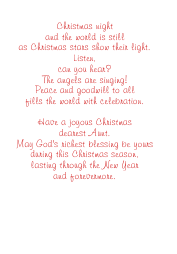 Christmas night
and the world is still
as Christmas stars show their light.
Listen,
can you hear?
The angels are singing!
Peace and goodwill to all
fills the world with celebration.

Have a joyous Christmas
dearest Aunt.
May God's richest blessing be yours
during this Christmas season,
lasting through the New Year
and forevermore.